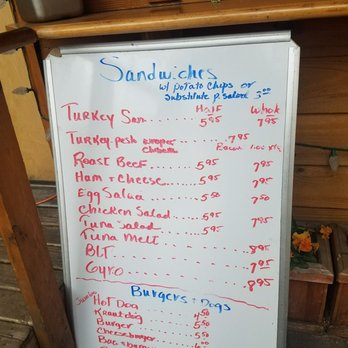 Sandwiches
w/ potato chips or
substitute p. salad 3.00
Half Whole
Turkey San 5.95 7.95
Turkey-pesto 7.95
Roast Beef 5.95 7.95
Ham + Cheese 5.95 7.95
Egg Salad 5.50 7.50
Chicken Salad 5.95 7.95
Tuna Salad 5.95
Tuna Melt 8.95
BLT 7.95
Gyro 8.95
Burgers + Dogs
Jumbo
Hot Dog 4.50
Kraut dog 5.50
Burger 5.50
Cheeseburger